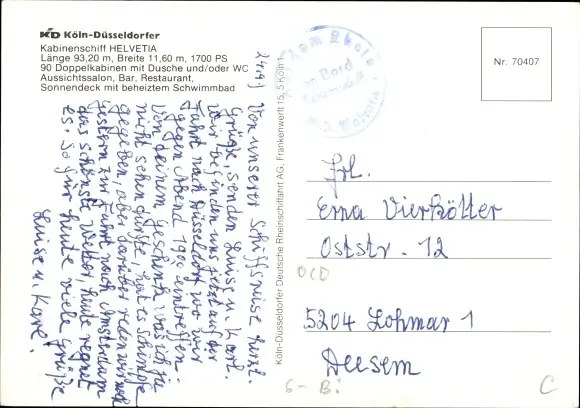 KD Köln-Düsseldorfer
Kabinenschiff HELVETIA
Länge 93,20 m, Breite 11,60 m, 1700 PS
90 Doppelkabinen mit Dusche und/oder WC
Aussichtssalon, Bar, Restaurant,
Sonnendeck mit beheiztem Schwimmbad
Nr. 70407
Von unserer Schiffsreise herzl.
Grüße, senden Luise u. Karl.
Wir befinden uns jetzt auf der
Fahrt nach Düsseldorf wo wir
gegen Abend 1900 eintreffen.
Von deinem Geschenk was ich ja
nicht sehen durfte, hat es Schimpfe
gegeben, aber darüber reden wir noch
gestern zur Fahrt nach Amsterdam
das schönste Wetter, heute regnet
es. So für heute viele Grüße
Luise u. Karl.
Köln-Düsseldorfer Deutsche Rheinschiffahrt AG, Frankenwerft 15, 5 Köln 1
vom Rhein
an Bord
Helvetia
Frl.
Erna Vierkötter
Oststr. 12
5204 Lohmar 1
Deesem
C